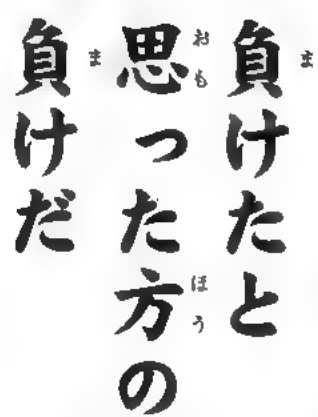 負けたと
思った方の
負けだ